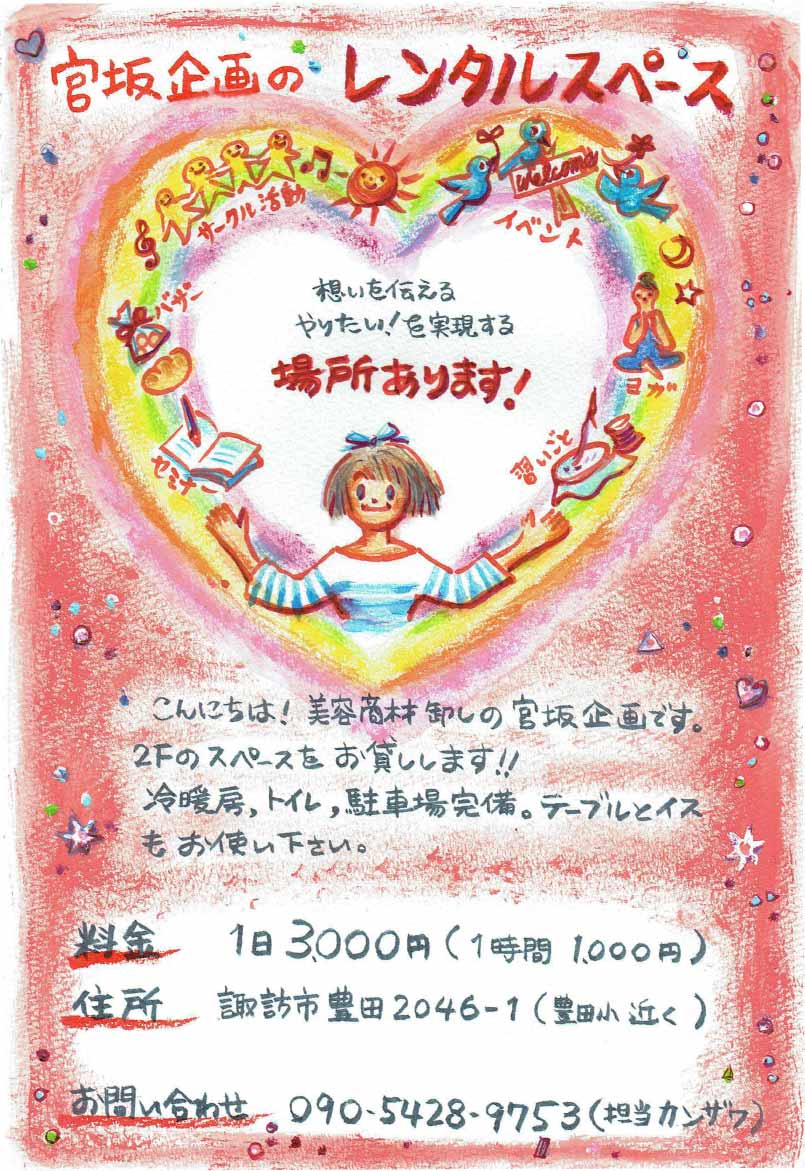 宮坂企画の レンタルスペース
サークル活動
welcome
イベント
バザー
ヨガ
セミナー
習いごと
想いを伝える
やりたい!を実現する
場所あります!
こんにちは! 美容商材卸しの宮坂企画です。
2Fのスペースをお貸しします!!
冷暖房,トイレ,駐車場完備。テーブルとイス
もお使い下さい。
料金 1日3,000円(1時間 1,000円)
住所 諏訪市豊田2046-1(豊田小近く)
お問い合わせ 090-5428-9753(担当カンザワ)